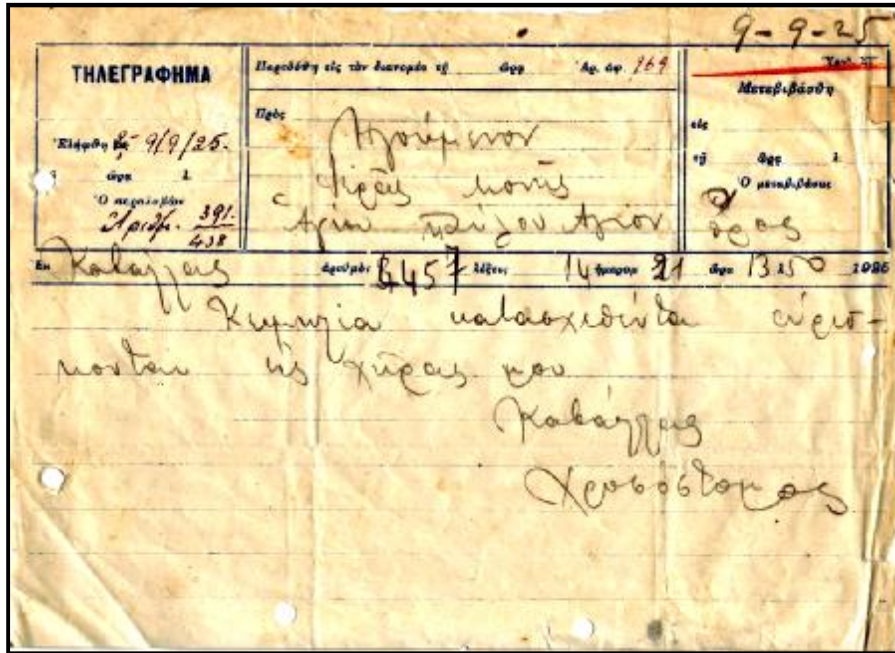 9-9-25
ΤΗΛΕΓΡΑΦΗΜΑ
Ἐλήφθη 9/9/25.
ὥρα λ
Ὁ παραλαβὼν
Ἀριθμ. 391/438
Παρεδόθη εἰς τὸν διανομέα τῇ ὥρᾳ Ἀρ. ἀφ. 169
Πρὸς
Ἡγούμενον
Ἱερᾶς Μονῆς
Ἁγίου Παύλου Ἁγιον ὄρος
Μετεβιβάσθη
εἰς
τῇ ὥρᾳ λ
Ὁ μεταβιβάσας
Ἐκ Καβάλλας ἀριθμὸς 4457 λέξεις 14 ἡμερομ 21 ὥρα 13 λ 50 192
Κειμήλια κατασχεθέντα εὑρίσ-
κονται εἰς χεῖρας μου
Καβάλλας
Χρυσόστομος